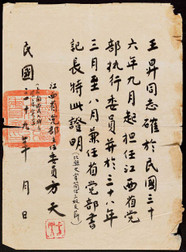 王昇同志確於民國三十
六年九月起担任江西省党
部執行委員並於三十八年
三月至八月兼任省党部書
記長特此證明
江西省党部主任委員 方天
民國 年 月 日